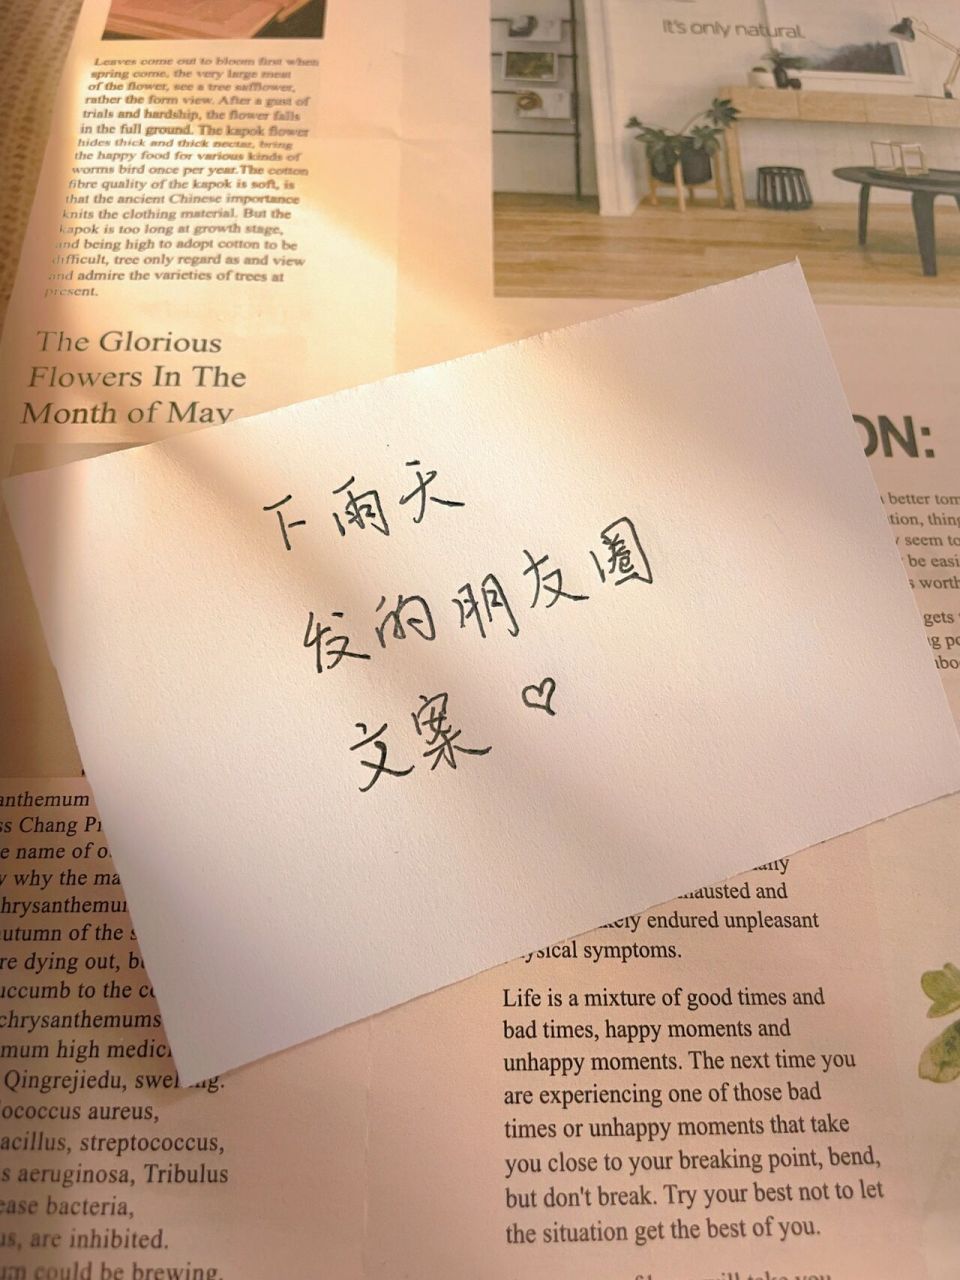 It's only natural.
Leaves come out to bloom first when
spring come, the very large meat
of the flower, see a tree safflower,
rather the form view. After a gust of
trials and hardship, the flower falls
in the full ground. The kapok flower
hides thick and thick nectar, bring
the happy food for various kinds of
worms bird once per year.The cotton
fibre quality of the kapok is soft, is
that the ancient Chinese importance
knits the clothing material. But the
kapok is too long at growth stage,
and being high to adopt cotton to be
difficult, tree only regard as and view
and admire the varieties of trees at
present.
The Glorious
Flowers In The
Month of May
ON:
better tom
tion, thing
seem to
be easi
s worth
gets
g po
下雨天
发的朋友圈
文案♡
anthemum
ss Chang Pr
e name of o
y why the ma
hrysanthemu
autumn of the s
re dying out, b
uccumb to the co
chrysanthemums
mum high medic
Qingrejiedu, swelling.
ococcus aureus,
acillus, streptococcus,
s aeruginosa, Tribulus
ease bacteria,
us, are inhibited.
um could be brewing.
hausted and
ely endured unpleasant
ysical symptoms.
Life is a mixture of good times and
bad times, happy moments and
unhappy moments. The next time you
are experiencing one of those bad
times or unhappy moments that take
you close to your breaking point, bend,
but don't break. Try your best not to let
the situation get the best of you.
will take you